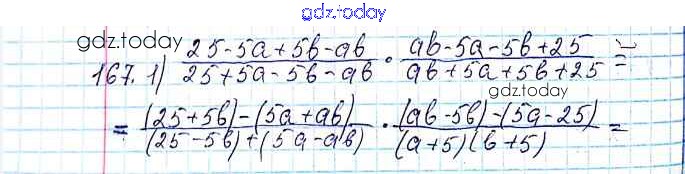 gdz.today
gdz.today
167. 1) (25-5a+5b-ab)/(25+5a-5b-ab) · (ab-5a-5b+25)/(ab+5a+5b+25) =
gdz.today
= ((25+5b)-(5a+ab))/((25-5b)+(5a-ab)) · ((ab-5b)-(5a-25))/((a+5)(b+5)) =